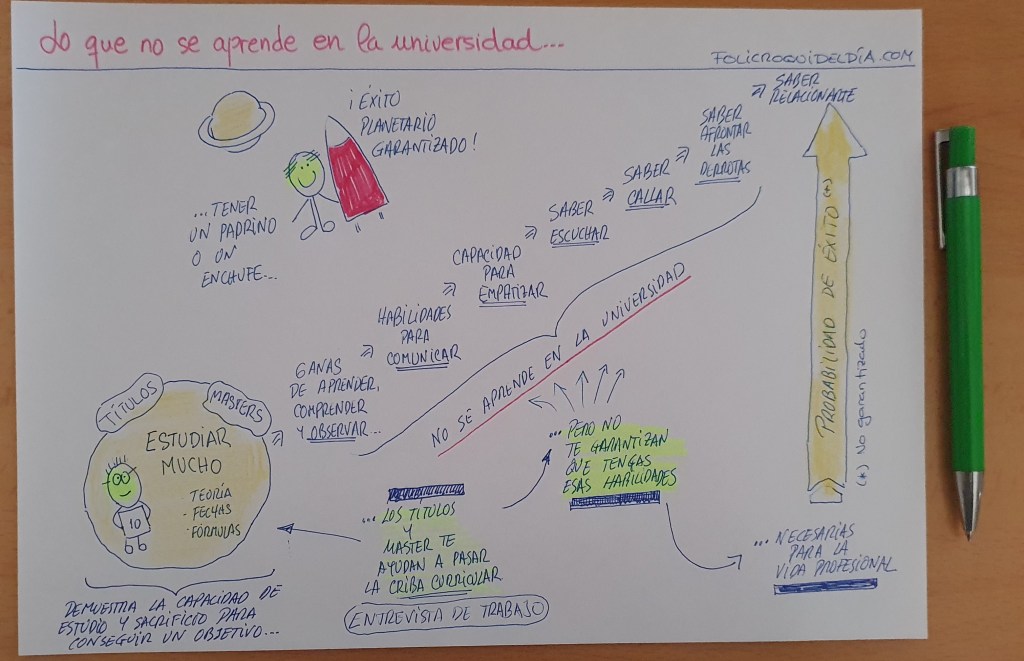 Lo que no se aprende en la universidad...
FOLICROQUIDELDÍA.COM
¡ÉXITO
PLANETARIO
GARANTIZADO!
...TENER
UN PADRINO
O UN
ENCHUFE...
TÍTULOS
MASTERS
ESTUDIAR
MUCHO
TEORÍA
- FECHAS
- FÓRMULAS
10
DEMUESTRA LA CAPACIDAD DE
ESTUDIO Y SACRIFICIO PARA
CONSEGUIR UN OBJETIVO...
GANAS
DE APRENDER,
COMPRENDER
Y OBSERVAR...
HABILIDADES
PARA
COMUNICAR
CAPACIDAD
PARA
EMPATIZAR
SABER
ESCUCHAR
SABER
CALLAR
SABER
AFRONTAR
LAS
DERROTAS
SABER
RELACIONARTE
NO SE APRENDE EN LA UNIVERSIDAD
... LOS TITULOS
Y
MASTER TE
AYUDAN A PASAR
LA CRIBA CURRICULAR
ENTREVISTA DE TRABAJO
... PERO NO
TE GARANTIZAN
QUE TENGAS
ESAS HABILIDADES
... NECESARIAS
PARA LA
VIDA PROFESIONAL
PROBABILIDAD DE ÉXITO (*)
(*) No garantizado